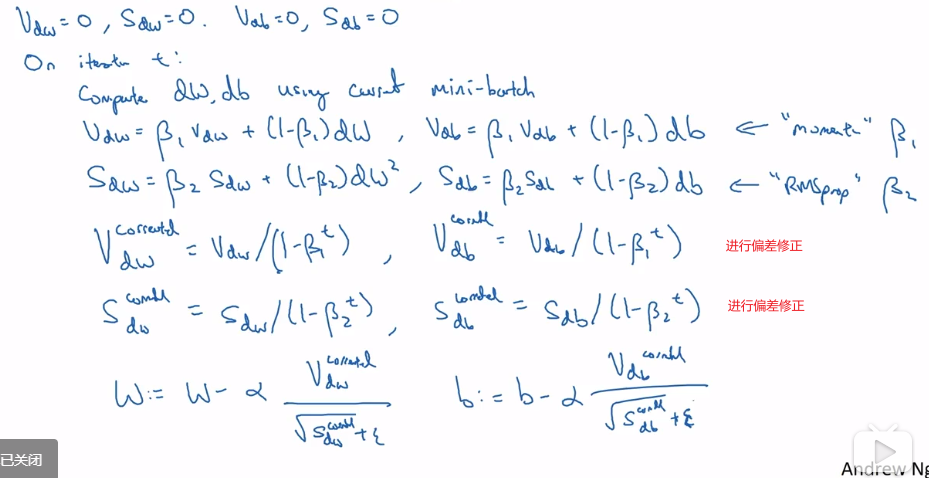 V_dw = 0, S_dw = 0. V_db = 0, S_db = 0
On iteration t:
Compute dW, db using current mini-batch
V_dw = β₁ V_dw + (1-β₁) dW , V_db = β₁ V_db + (1-β₁) db ← "momentum" β₁
S_dw = β₂ S_dw + (1-β₂) dW² , S_db = β₂ S_db + (1-β₂) db ← "RMSprop" β₂
V_dw^corrected = V_dw / (1-β₁^t) , V_db^corrected = V_db / (1-β₁^t) 进行偏差修正
S_dw^corrected = S_dw / (1-β₂^t) , S_db^corrected = S_db / (1-β₂^t) 进行偏差修正
W := W - α V_dw^corrected / √S_dw^corrected + ε b := b - α V_db^corrected / √S_db^corrected + ε
已关闭
Andrew Ng